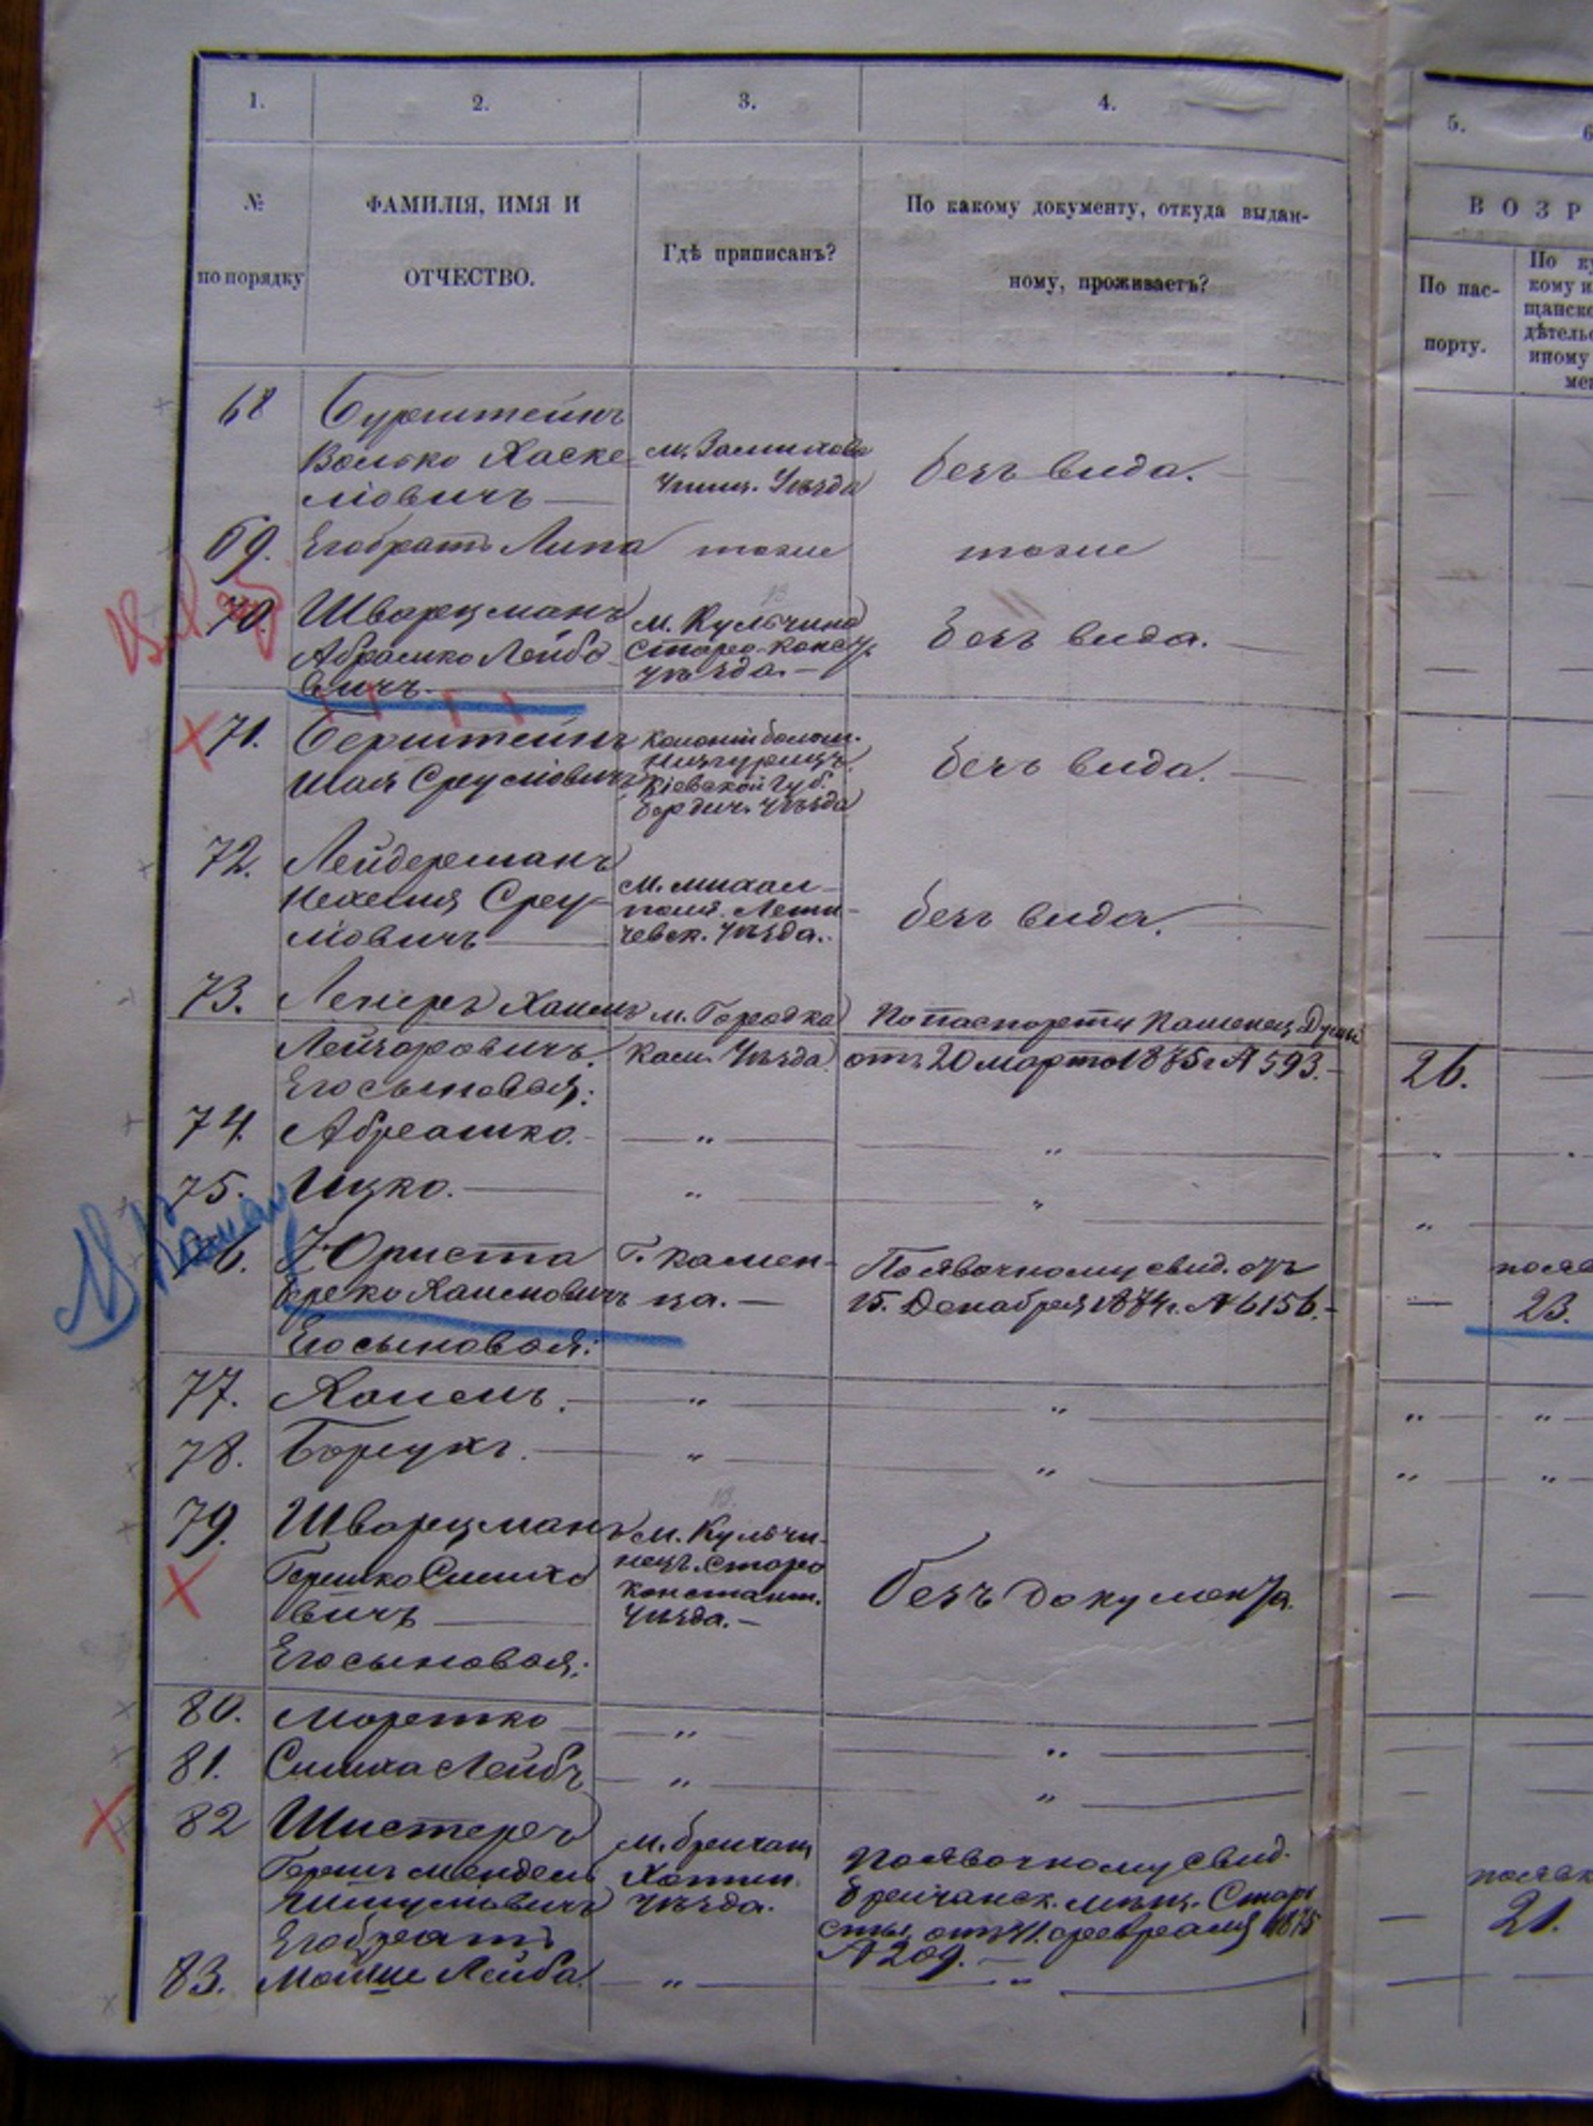 1. 2. 3. 4. 5. 6
№ по порядку
ФАМИЛІЯ, ИМЯ И
ОТЧЕСТВО.
Гдѣ приписанъ?
По какому документу, откуда выдан-
ному, проживаетъ?
ВОЗР
По пас-
порту.
По ку
кому и
щанско
дѣтельс
иному
мен
68 Бурштейнъ
Волько Хаске-
ліовичъ
м. Замихова
Ушиц. Уѣзда
безъ вида.
69. Его братъ Липа тоже тоже
70. Шварцманъ
Абрамко Лейбо-
вичъ.
м. Кульчина
Старо-Конс.
уѣзда.
безъ вида.
71. Берштейнъ
Шая Сруліовичъ
Колоніи
Кіевской Губ.
Бердич. Уѣзда
безъ вида.
72. Лейдерманъ
Нехемія Сру-
ліовичъ
м. Михал-
поля. Лети-
чевск. Уѣзда.
безъ вида.
73. Хаимъ
Лейзоровичъ.
Его сыновья:
м. Городка
Кам. Уѣзда.
По паспорту Каменец. Думы
отъ 20 марта 1875 г № 593.
26.
74. Абрамко. " "
75. Ицко. " "
76. Юриста
Герко Хаимовичъ
Его сыновья:
Г. Камен-
ца.
По явочному свид. отъ
15. Декабря 1874 г. № 6156.
23.
77. Хаимъ. " "
78. Борухъ. " "
79. Шварцманъ
Гершко Симхо-
вичъ
Его сыновья:
м. Кульчи-
нецъ. Старо
констант.
Уѣзда.
безъ документа.
80. Мортко " "
81. Симха Лейбъ " "
82 Шистеръ
Гершъ Мендель
Шмулёвичъ
Его братъ
м. Бричаны
Хотин.
Уѣзда.
По явочному свид.
Бричанск. мѣщ. Старо
сты отъ 11. февраля 1875
№ 209.
21.
83. Мойше Лейба. " "